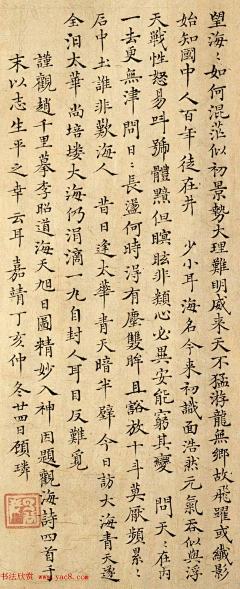 望海海如何混茫似初景勢大理難明威来天不猛游龍無鄉故飛躍或纖影
始知國中人百年徒在井 少小耳海名今来初識面浩然元氣吞似與浮
天戰性怒易呌號體黯但瞑眩非類心必異安能窮其變 問天天在内
一去更無津問日日長邊何時得有塵雙眸且豁放十斗莫厭頻累累
石中土誰非歎海人 昔日逢太華青天暗半壁今日訪大海青天遂
全汨太華尚培塿大海仍涓滴一九自封人耳目反難覓
謹觀趙千里摹李昭道海天旭日圖精妙入神因題觀海詩四首于
末以志生平之幸云耳 嘉靖丁亥仲冬廿四日顧璘
书法欣赏 www.yac8.com